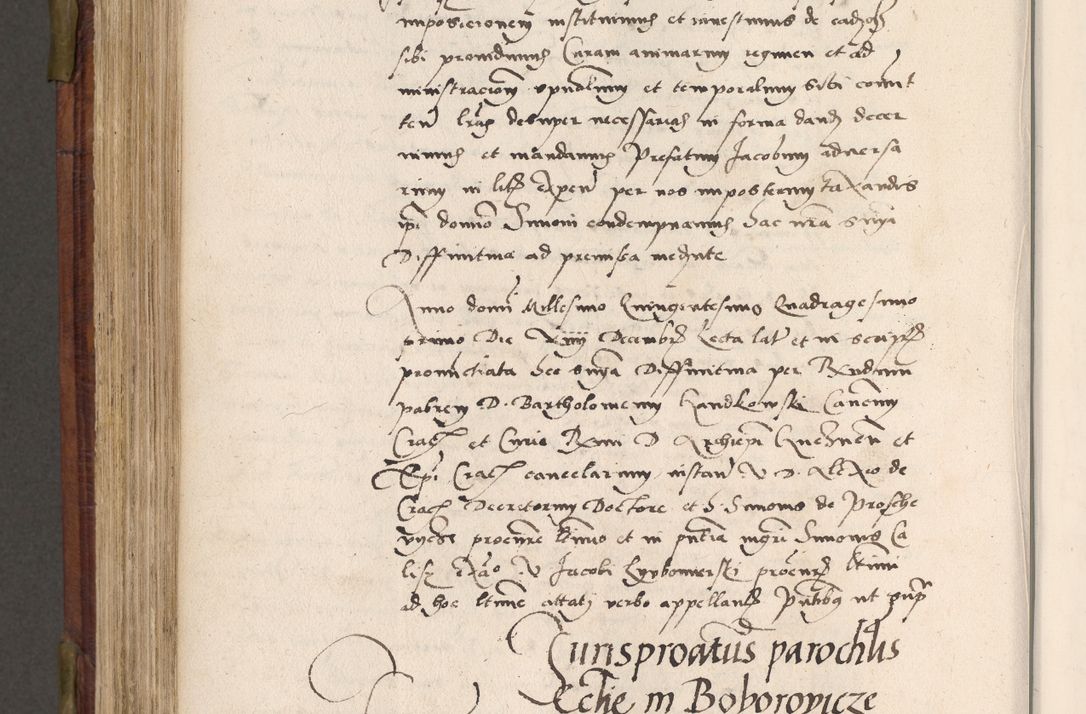 imposicionem instituimus et investimus de eadem
sibi providimus Curam animarum regimen et ad
ministracionem spiritualium et temporalium sibi comit
ten lras desuper necessarias in forma dandas decer
nimus et mandamus Prefatum Jacobum adversa
rium in litis expen per nos imposterum taxandis
ipi domino Simoni condempnamus hac nra snia
Diffinitiva ad premissa mediante
Anno domini Millesimo Quingentesimo Quadragesimo
primo Die Xiiij Decembris Lecta lat et in scriptis
pronunctiata hec snia Diffinitiva per Rndum
patrem D. Bartholomeum Gandkowski Canonicum
Crac et Curie Rmi D Archiepi Gneznen et
Epi Crac cancelarium instan V. D. Alexio de
Crac Decretorum Doctore et D. Simonis de Prosche
vycze procuratore ltimo et in pntia mgri Simonis Ca
lisz exa V Jacobi Lyubomierski procuratoris ltimi
ad hoc ltime attati verbo appellantis Pntibus ut supra
Jurispronatus parochlis
Ecclie in Boborovicze